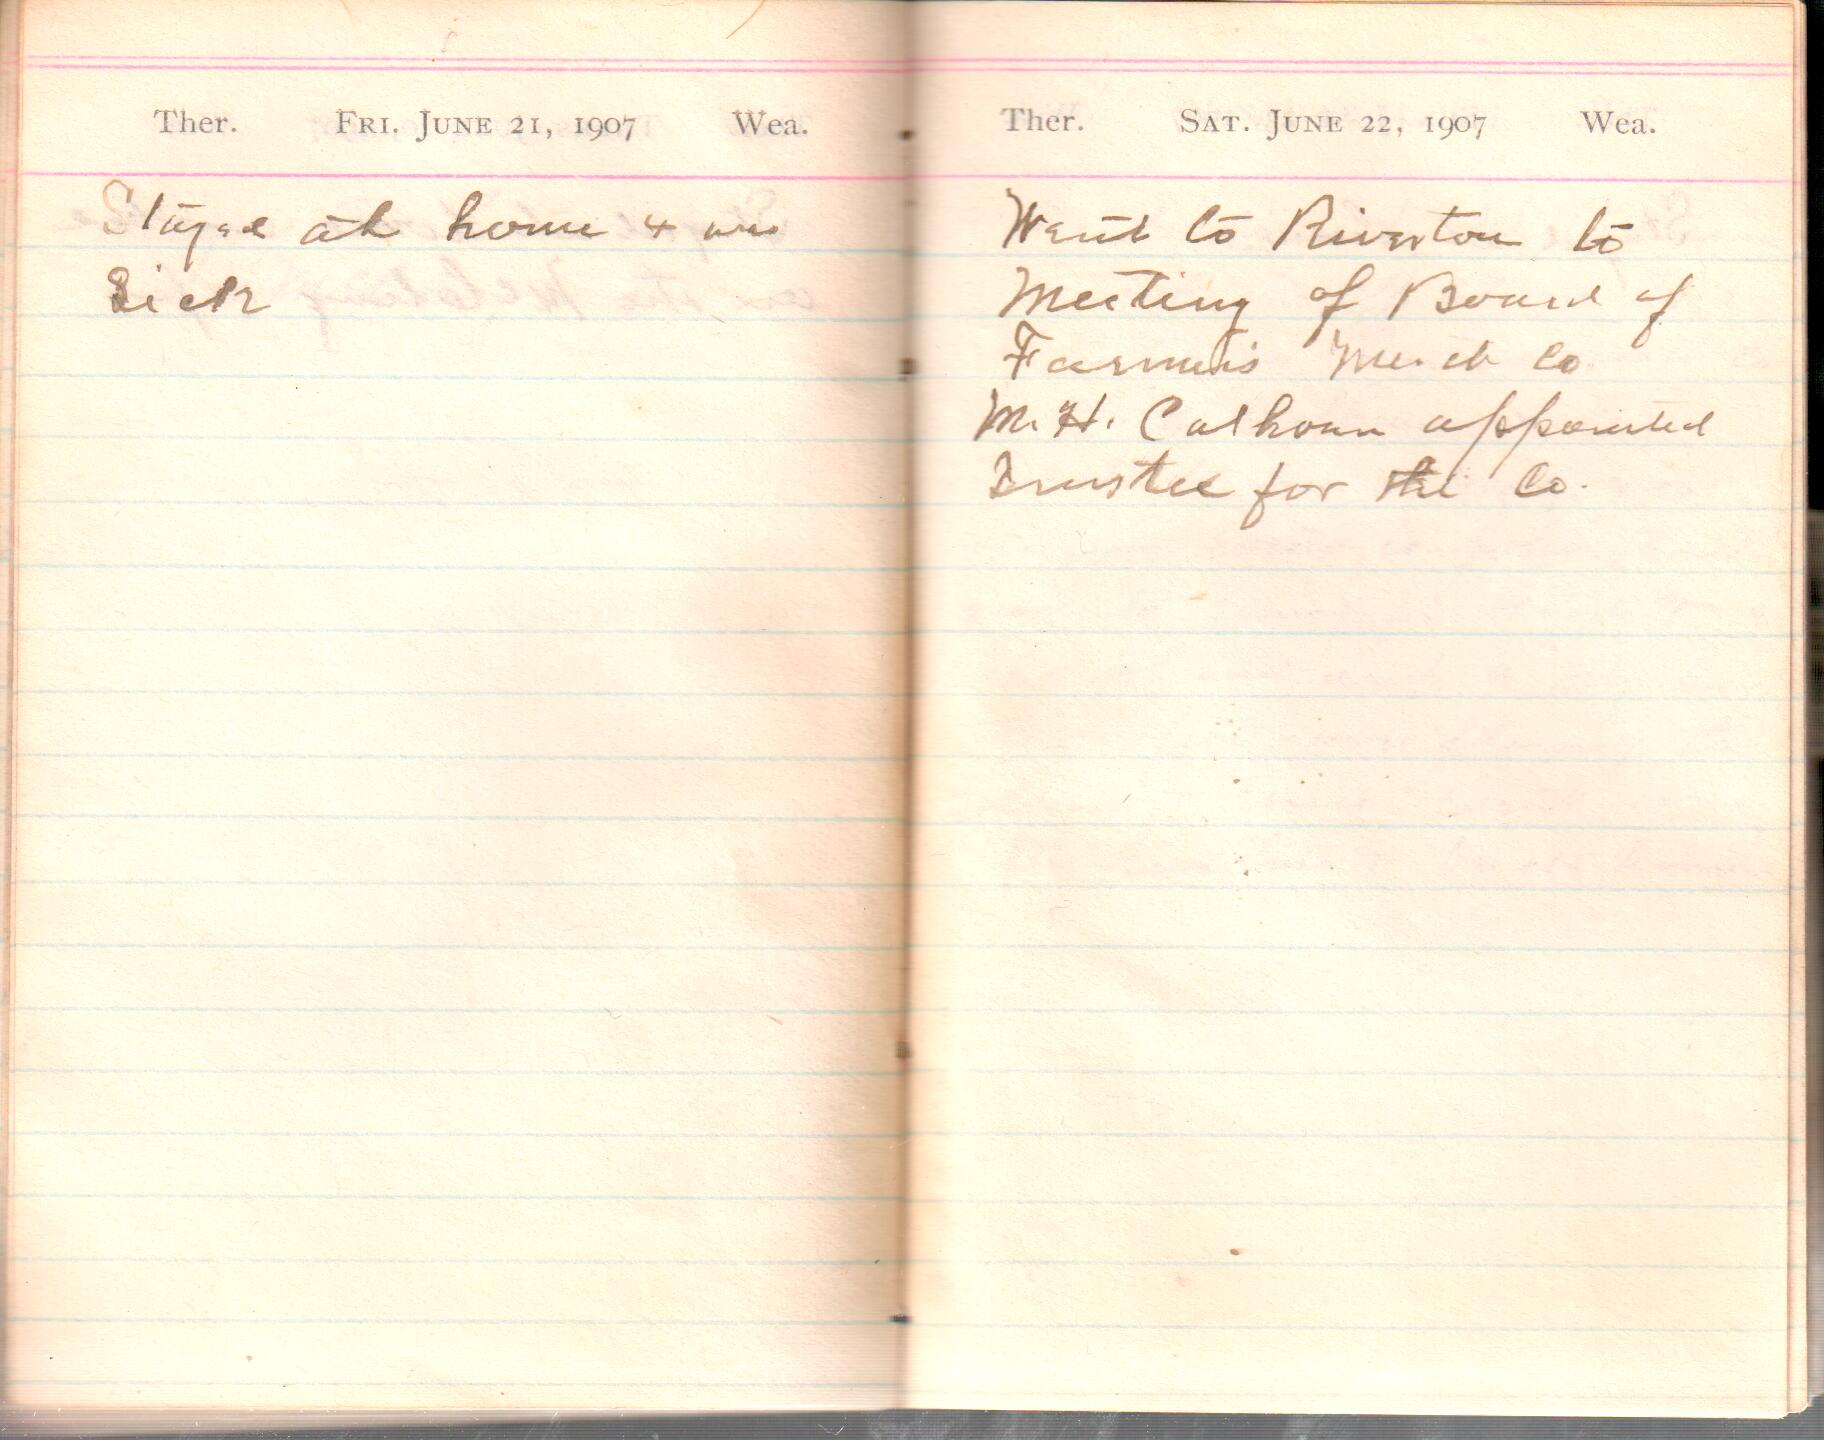 Ther. FRI. JUNE 21, 1907 Wea.
Stayed at home & was
Sick
Ther. SAT. JUNE 22, 1907 Wea.
Went to Riverton to
Meeting of Board of
Farmers Merch Co
M. H. Calhoun appointed
Trustee for the Co.